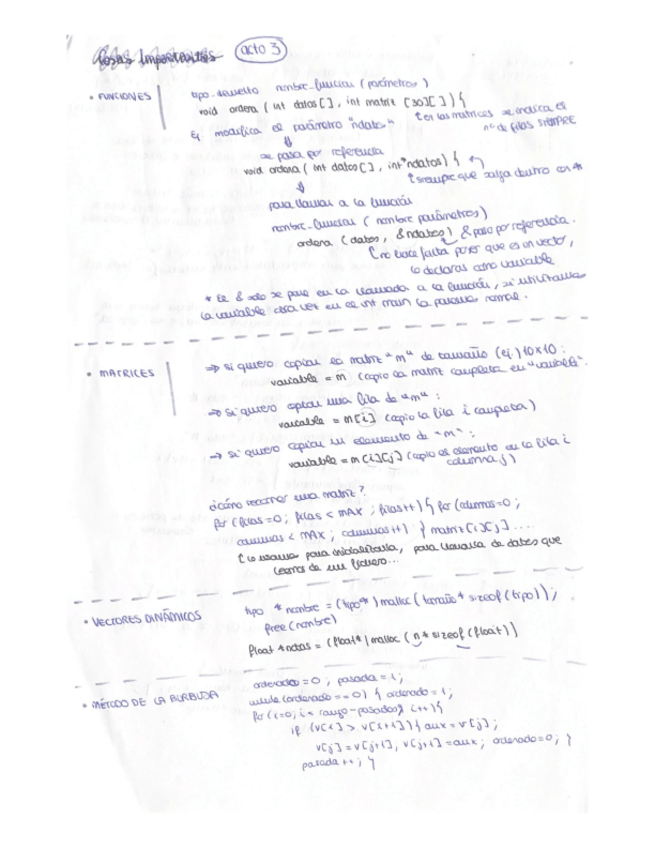 Cosas Importantes acto 3
• FUNCIONES
tipo-devuelto nombre-funcion (parámetros)
void ordena (int datos[], int matriz [30][]) {
en las matrices se indica el
nº de filas SIEMPRE
Si modifica el parámetro "ndatos"
se pasa por referencia
void ordena (int datos[], int*ndatos) {
siempre que salga dentro con *
para llamar a la función
nombre-funcion (nombre parámetros)
ordena (datos, &ndatos) & paso por referencia.
no hace falta poner que es un vector,
lo declaras como variable
* El & solo se pone en la llamada a la función, si utilizamos
la variable otra vez en el int main la ponemos normal.
• MATRICES
⇒ si quiero copiar la matriz "m" de tamaño (ej.) 10x10:
variable = m (copio la matriz completa en "variable".
⇒ si quiero copiar una fila de "m":
variable = m[i] (copio la fila i completa)
→ si quiero copiar un elemento de "m":
variable = m[i][j] (copio el elemento en la fila i
columna j)
¿cómo recorrer una matriz?
for (filas=0; filas < MAX; filas++) { for (columnas=0;
columnas < MAX; columnas++) { matriz[i][j] ....
lo usamos para inicializarla, para llenarla de datos que
leemos de un fichero...
• VECTORES DINÁMICOS
tipo * nombre = (tipo*) malloc (tamaño * sizeof (tipo));
free (nombre)
float *notas = (float*) malloc (n * sizeof (float))
• MÉTODO DE LA BURBUJA
ordenado = 0; pasada = 1;
while (ordenado == 0) { ordenado = 1;
for (i=0; i < rango-pasada; i++) {
if (v[i] > v[i+1]) { aux = v[j];
v[j] = v[j+1], v[j+1] = aux; ordenado=0; }
pasada ++; }